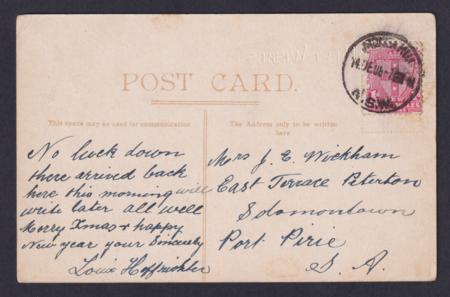 POST CARD.
This space may be used for communication
The Address only to be written
here
No luck down
there arrived back
here this morning will
write later all well
Merry Xmas & happy
New year your Sincerely
Mrs J. C. Wickham
East Terrace Peterton
Solomontown
Port Pirie
S. A.
14 DE 08
N.S.W.